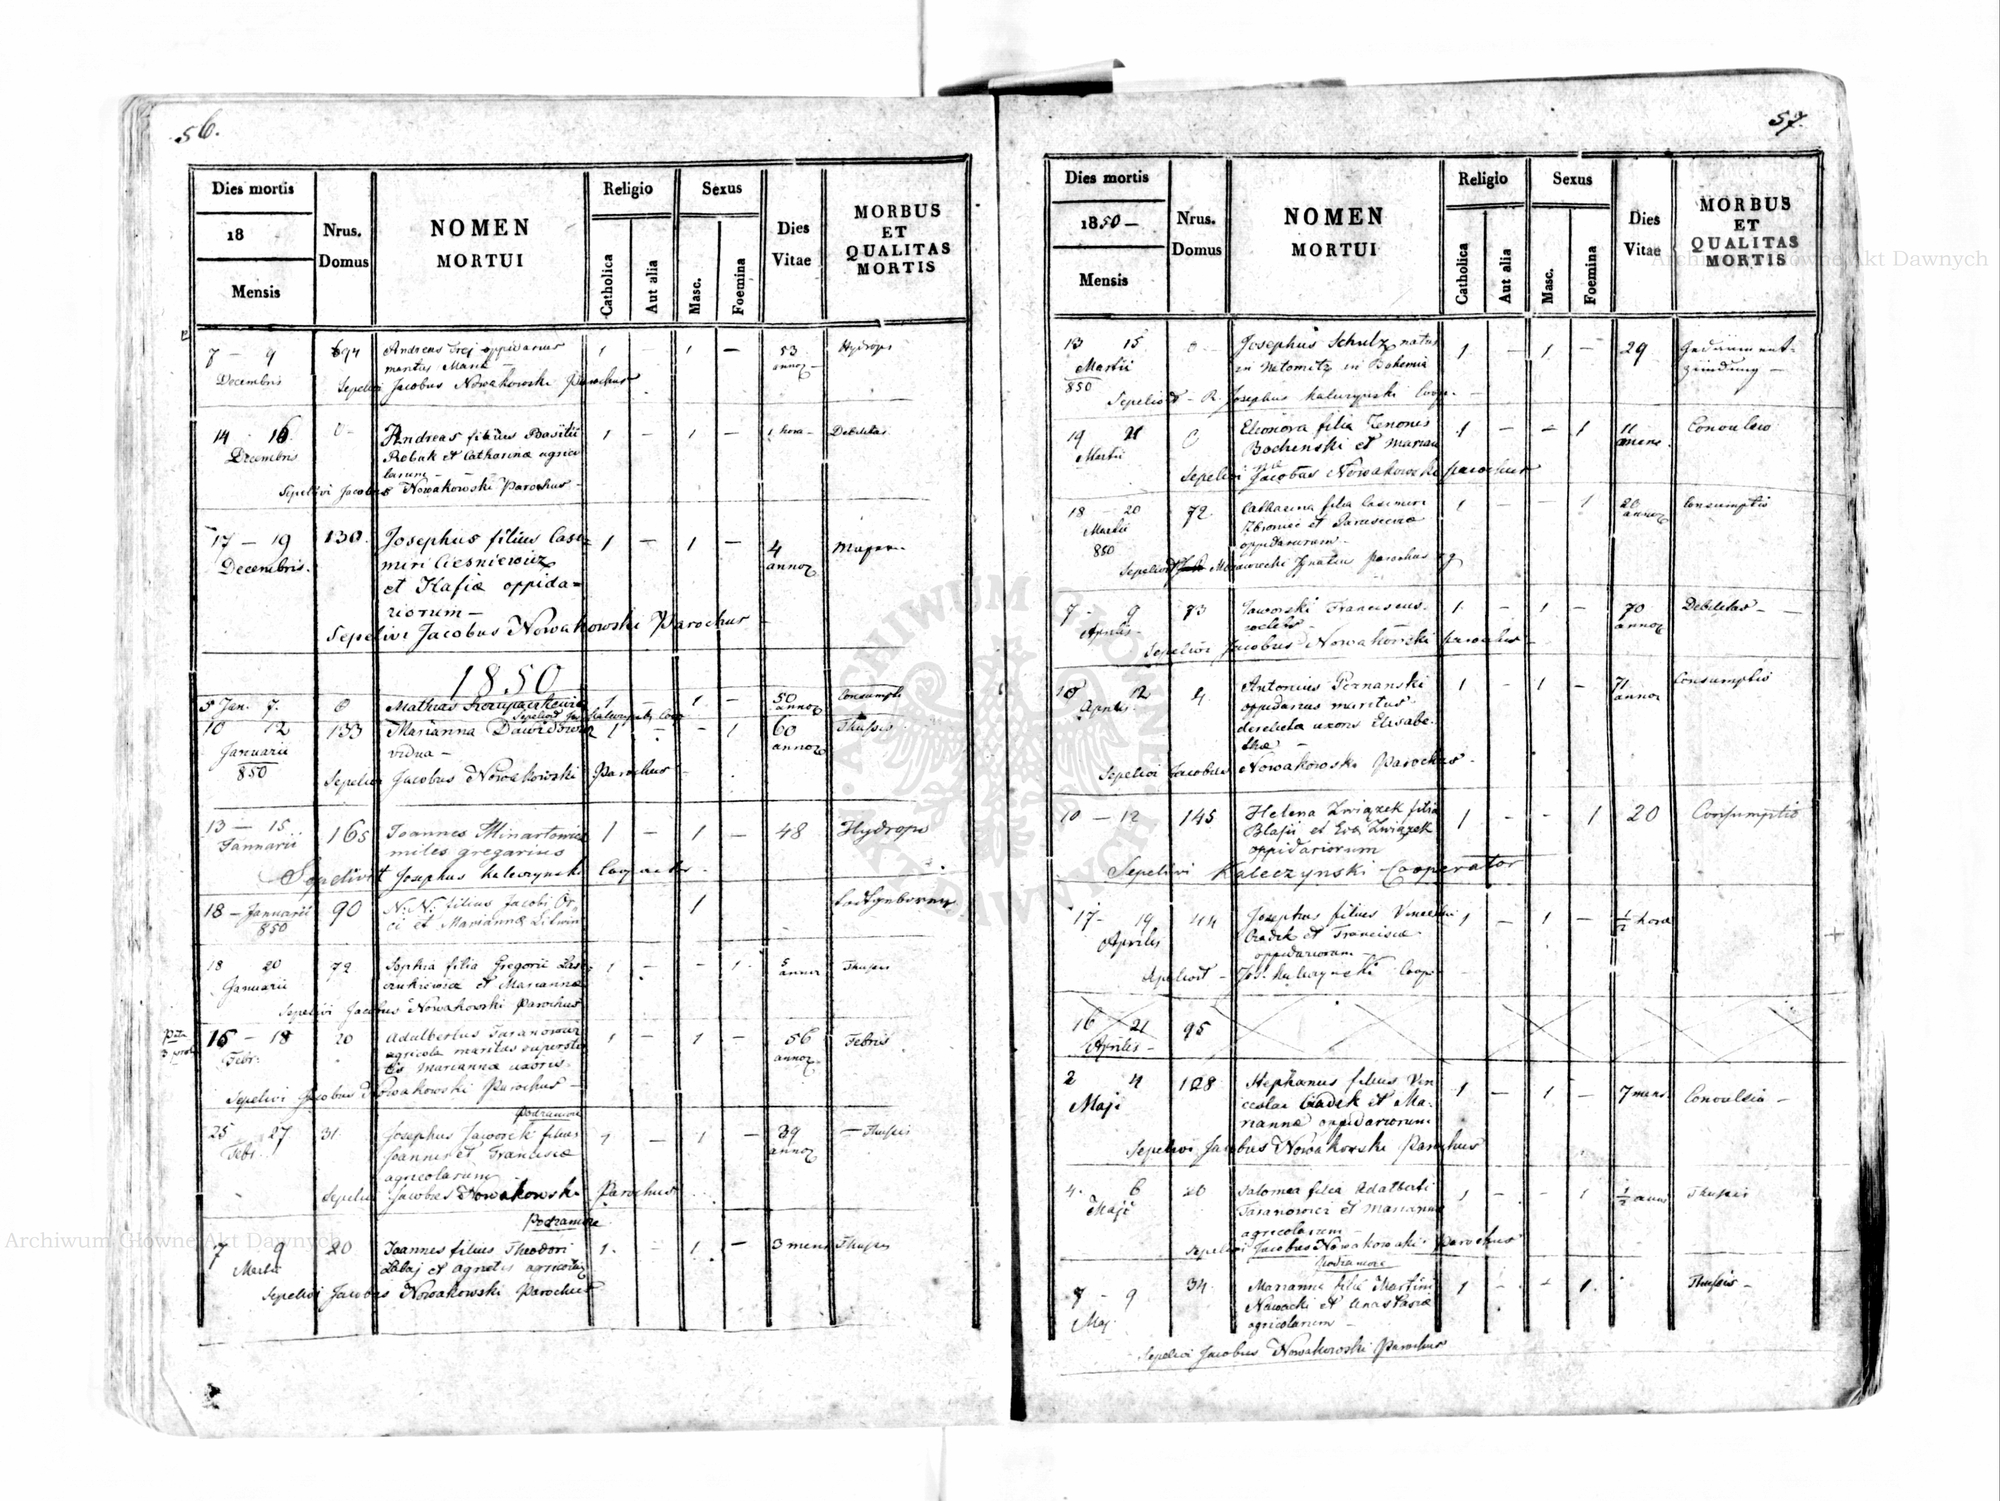 56.
Dies mortis
18
Mensis
Nrus.
Domus
NOMEN
MORTUI
Religio
Catholica
Aut alia
Sexus
Masc.
Foemina
Dies
Vitae
MORBUS
ET
QUALITAS
MORTIS
7 — 9 694 Andreas oppidanus 1 1 — 53 Hydrops
Decembris maritus annor
Sepelivi Jacobus Nowakowski Parochus
14 16 0 Andreas filius Basilii 1 — 1 — 1 hora Debilitas
Decembris Robak et Catharinæ agrico
larum —
Sepelivi Jacobus Nowakowski Parochus
17 — 19 130. Josephus filius Casi= 1 — 1 — 4
Decembris. miri Ciesniewicz annor
et Kasiæ oppida=
riorum —
Sepelivi Jacobus Nowakowski Parochus
1850
5 Jan. 7. 0 Mathias 1 1 — 50 Consumpti
annor
10 12 133 Marianna Dawidowicz 1 — — 1 60 Thussis
Januarii vidua — annor
850
Sepelivi Jacobus Nowakowski Parochus
13 — 15 165 Joannes Minartowicz 1 — 1 — 48 Hydrops
Januarii miles gregarius
Sepelivit Josephus Kaleczynski Cooperator
18 — Januarii 90 N: N: filius Jacobi 1 todtgeboren
850 et Mariannæ Litwin
18 20 72 Sophia filia Gregorii 1 — — 1 5 Thussis
Januarii et Mariannæ annor
Sepelivi Jacobus Nowakowski Parochus
16 — 18 20 Adalbertus Taranowicz 1 — 1 — 56 Febris
Febr. agricola maritus supersti annor
tis Mariannæ uxoris
Sepelivi Jacobus Nowakowski Parochus
Podzamcze
25 27 31. Josephus Jaworek filius 1 — 1 — 39 — Thussis
Febr. Joannis et Franciscæ annor
agricolarum
Sepelivi Jacobus Nowakowski Parochus
Podzamcze
7 9 20 Joannes filius Theodori 1 — 1 — 3 mens Thussis
Martii et Agnetis
Sepelivi Jacobus Nowakowski Parochus
57.
Dies mortis
1850 —
Mensis
Nrus.
Domus
NOMEN
MORTUI
Religio
Catholica
Aut alia
Sexus
Masc.
Foemina
Dies
Vitae
MORBUS
ET
QUALITAS
MORTIS
13 15 0 Josephus Schulz natus 1 — 1 — 29
Martii in Netomitz in Bohemia
850
Sepelivit — R. Josephus Kaleczynski Coop.
19 21 0 Eleonora filia Zenonis 1 — — 1 11 Convulsio
Martii Bochenski et Marian mens.
næ
Sepelivi Jacobus Nowakowski parochus
18 — 20 72. Catharina filia Casimiri 1 — — 1 20 Consumptio
Martii et annor
850 oppidanorum —
Sepelivit Ignatius Parochus
7 — 9 73 Jaworski Franciscus. 1. — 1 — 70 Debilitas —
Aprilis annor
Sepelivi Jacobus Nowakowski parochus
10 12 4 Antonius Pernanski 1 — 1 — 71 Consumptio
Aprilis oppidanus maritus annor
derelicta uxoris Elisabe-
thæ —
Sepelivi Jacobus Nowakowski Parochus
10 — 12 145 Helena Związek filia 1 — — 1 20 Consumptio
Blasii et Evæ Związek
oppidariorum
Sepelivi Kaleczynski Cooperator
17 — 19 44 Josephus filius Vincentii 1 — 1 — ½ hora
Aprilis et Franciscæ
oppidariorum —
Sepelivit — Jos. Kaleczynski Coop
16 21 95
Aprilis —
2 4 128 Stephanus filius Vin 1 — 1 — 7 mens. Convulsio —
Maji ceslai et Ma-
riannæ oppidariorum
Sepelivi Jacobus Nowakowski Parochus
4. 6 20 Salomea filia Adalberti 1 — — 1 ½ anni Thussis
Maji Taranowicz et Mariannæ
agricolarum —
Sepelivi Jacobus Nowakowski Parochus
Podzamcze
7 — 9 34. Marianna filia Martini 1 — — 1. Thussis —
Maj. Nawacki et Anastasiæ
agricolarum —
Sepelivi Jacobus Nowakowski Parochus
Archiwum Główne Akt Dawnych
Archiwum Główne Akt Dawnych
ARCHIWUM GŁÓWNE AKT DAWNYCH